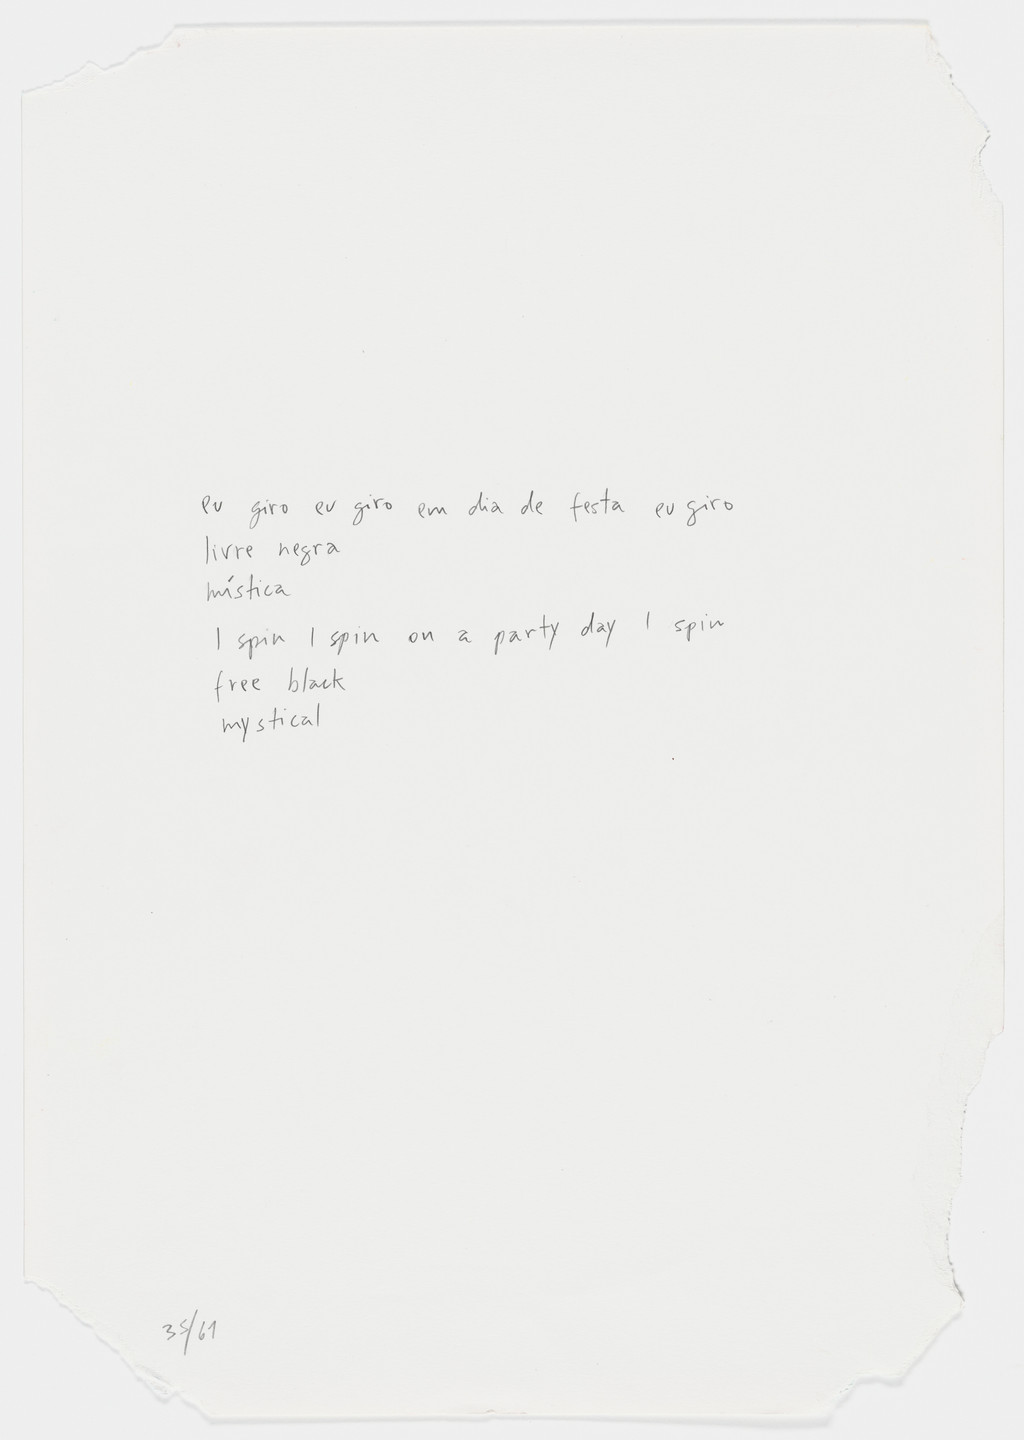 eu giro eu giro em dia de festa eu giro
livre negra
mística
I spin I spin on a party day I spin
free black
mystical
35/61